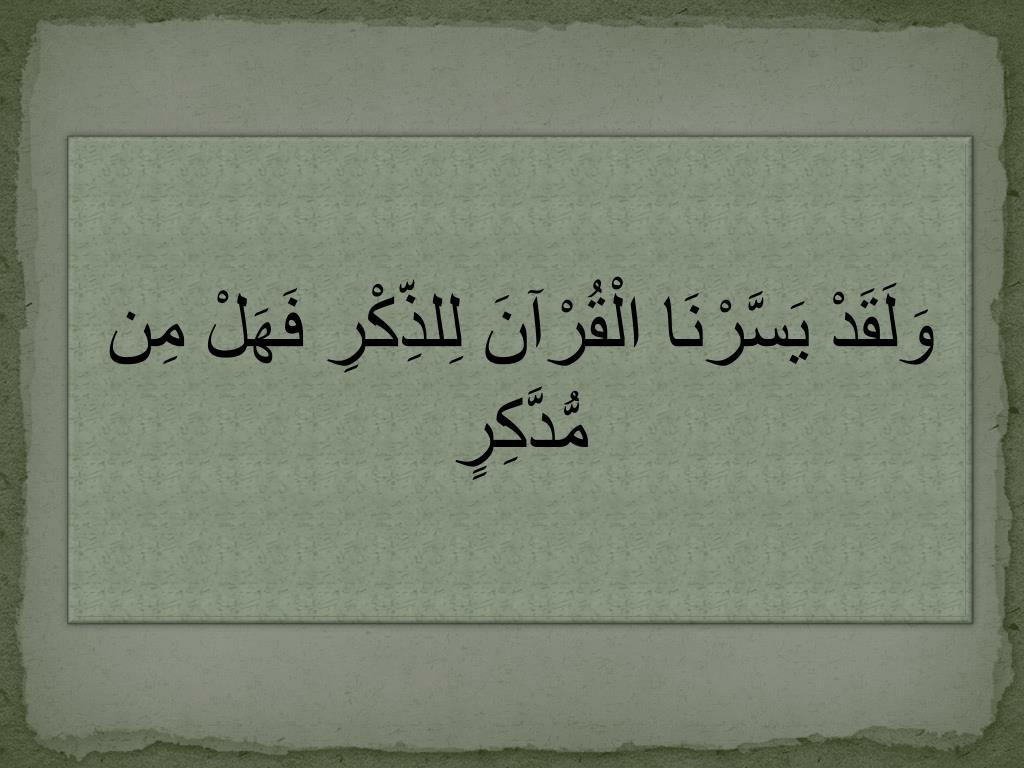 وَلَقَدْ يَسَّرْنَا الْقُرْآنَ لِلذِّكْرِ فَهَلْ مِن
مُّدَّكِرٍ